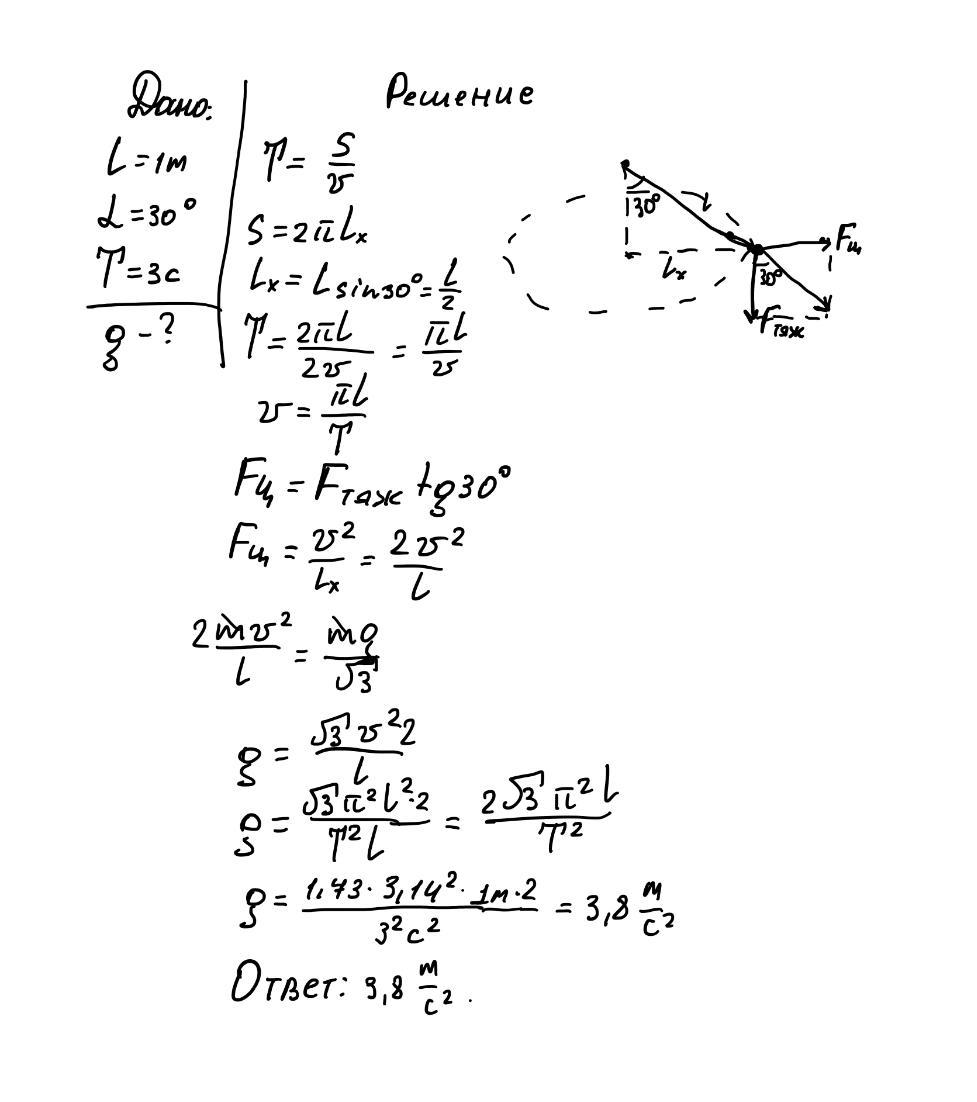 Дано:
L = 1м
α = 30°
T = 3с
g - ?
Решение
T = S/v
S = 2πLₓ
Lₓ = L sin30° = L/2
T = 2πL/2v = πL/v
v = πL/T
Fц = Fтяж tg30°
Fц = v²/Lₓ = 2v²/L
2mv²/L = mg/√3
g = √3 v² 2/L
g = √3 π² L² · 2/T² L = 2√3 π² L/T²
g = 1,73 · 3,14² · 1м · 2/3² с² = 3,8 м/с²
Ответ: 3,8 м/с².
30°
L
Fц
Lₓ
30°
Fтяж